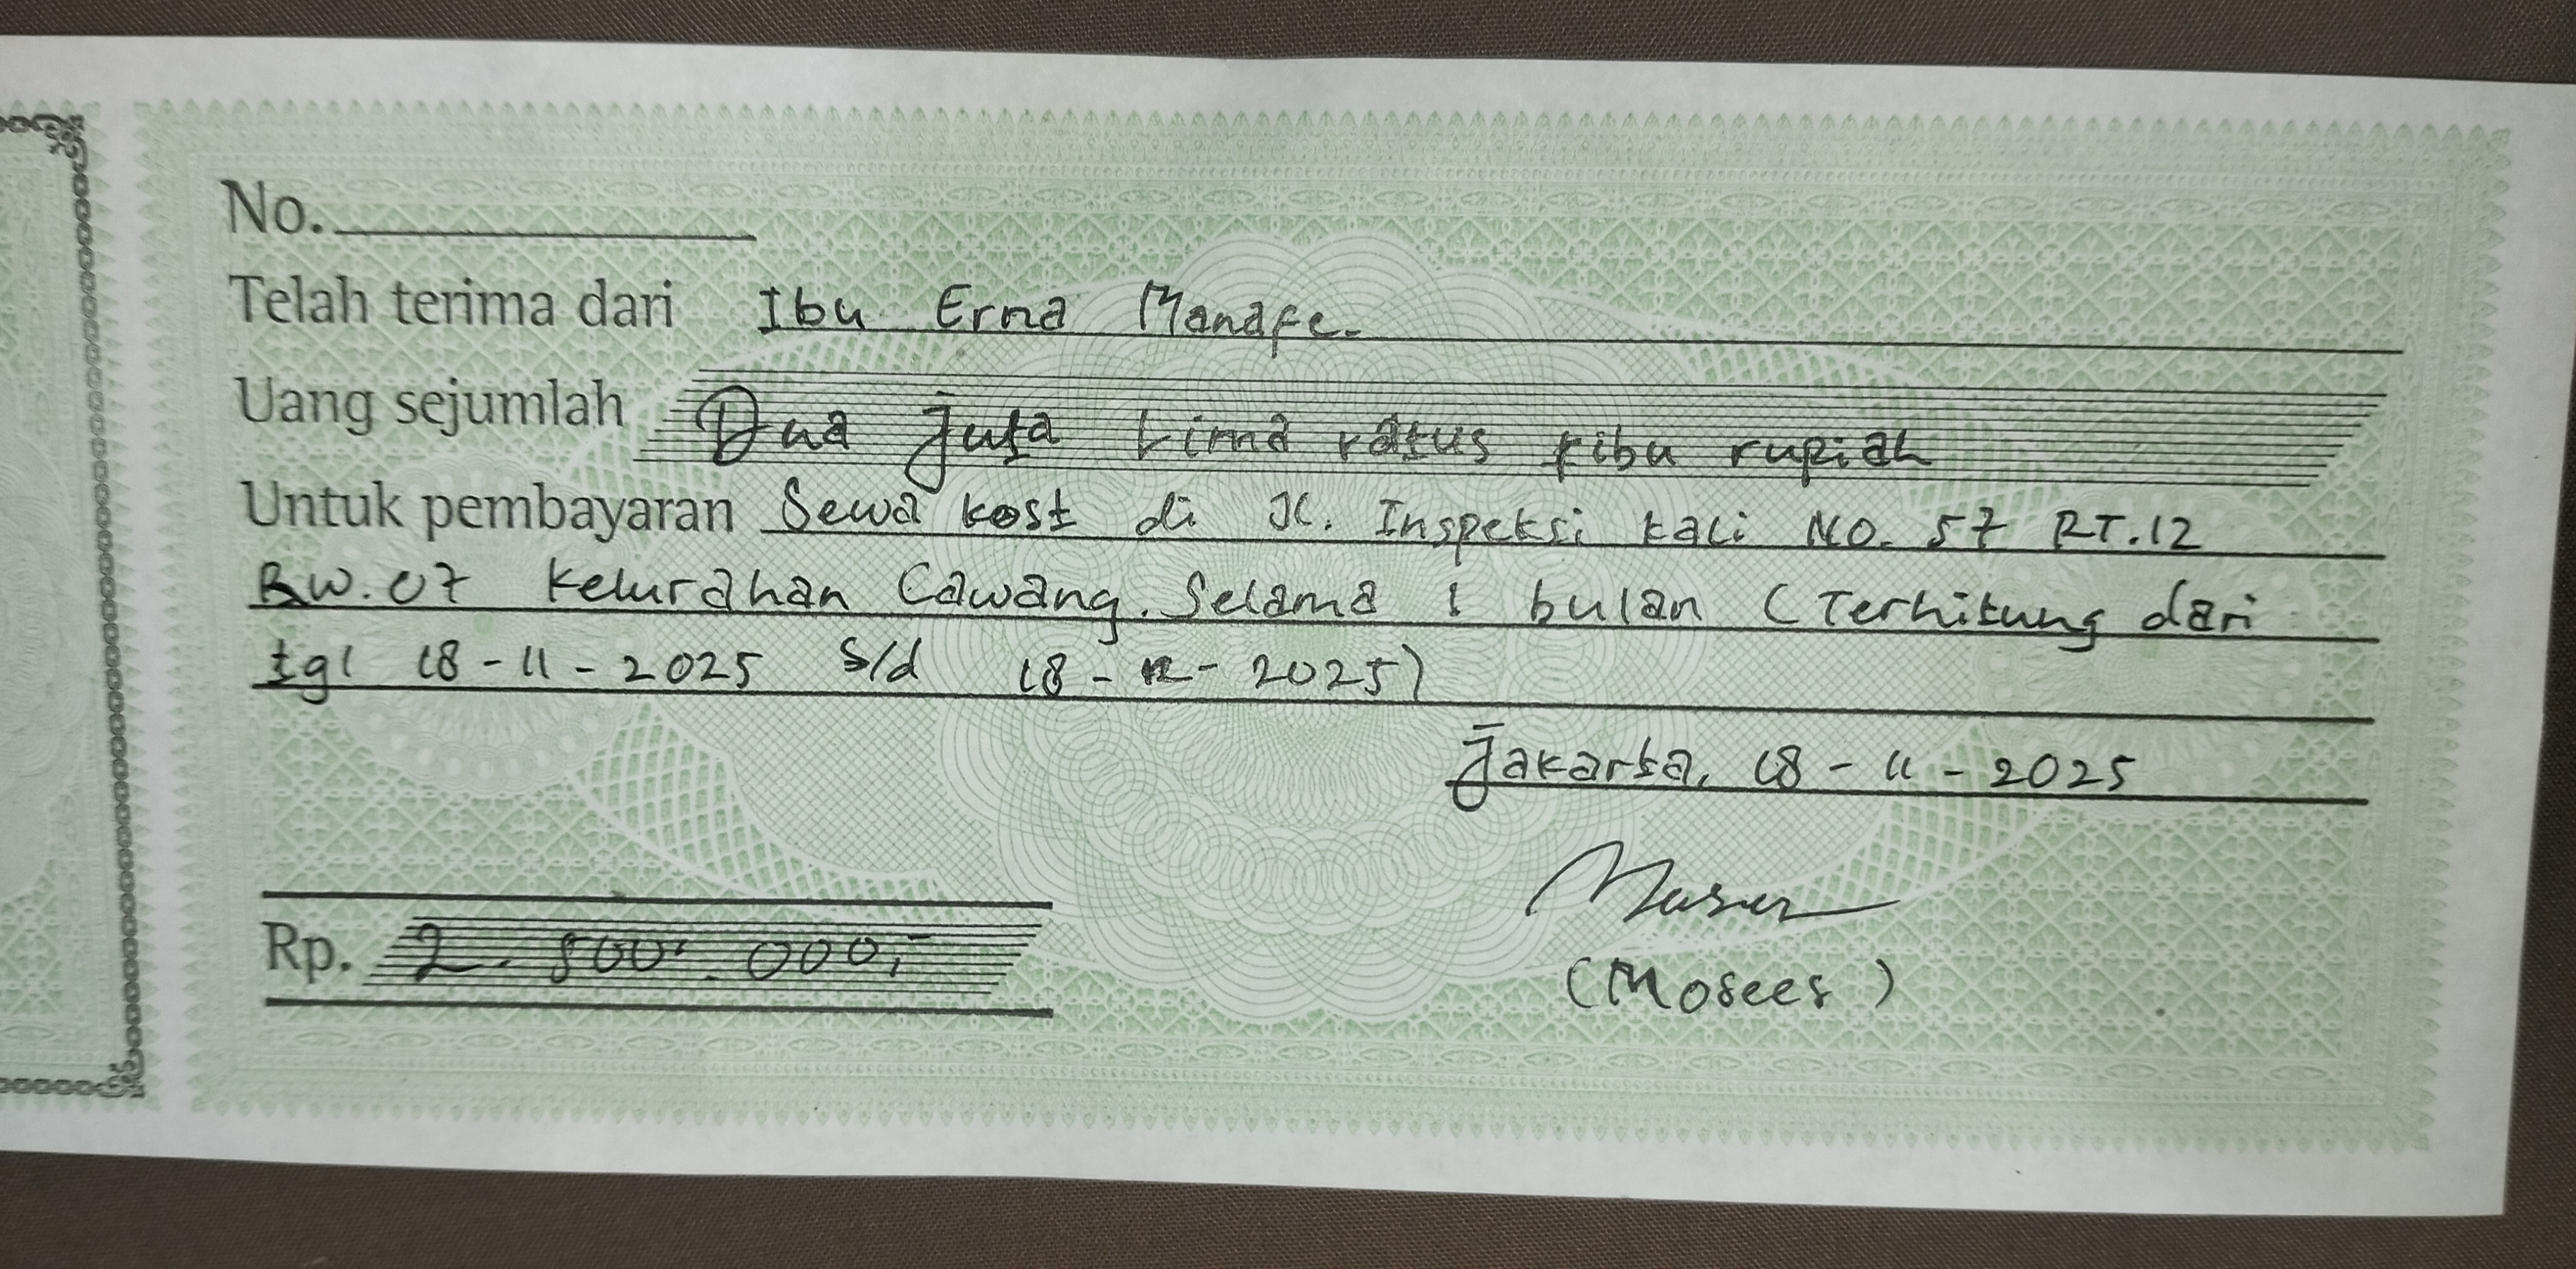 No.
Telah terima dari Ibu Erna Manafe.
Uang sejumlah Dua juta Lima ratus ribu rupiah
Untuk pembayaran Sewa kost di Jl. Inspeksi kali NO. 57 RT.12
RW.07 Kelurahan Cawang. Selama 1 bulan (Terhitung dari
tgl 18-11-2025 s/d 18-12-2025)
Jakarta, 18-11-2025
Rp. 2.500.000,-
(Mosees)